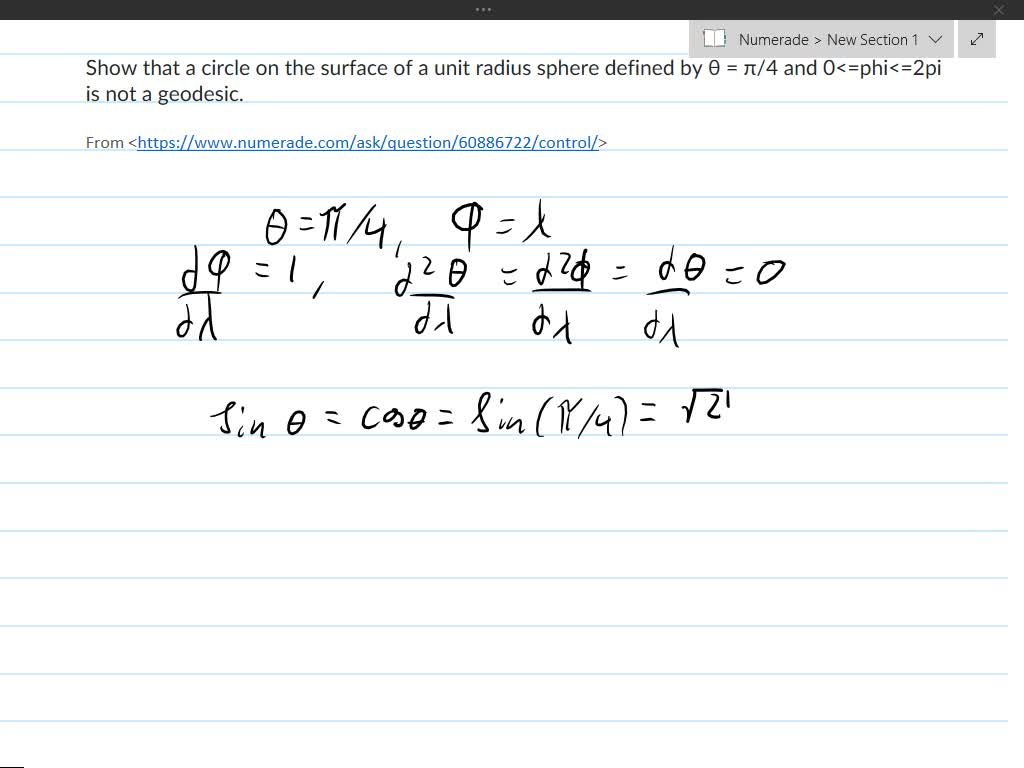 Numerade > New Section 1
Show that a circle on the surface of a unit radius sphere defined by θ = π/4 and 0<=phi<=2pi
is not a geodesic.
From <https://www.numerade.com/ask/question/60886722/control/>
θ = π/4, φ = λ
dφ/dλ = 1, d²θ/dλ = d²φ/dλ = dθ/dλ = 0
Sin θ = cosθ = Sin(π/4) = √2